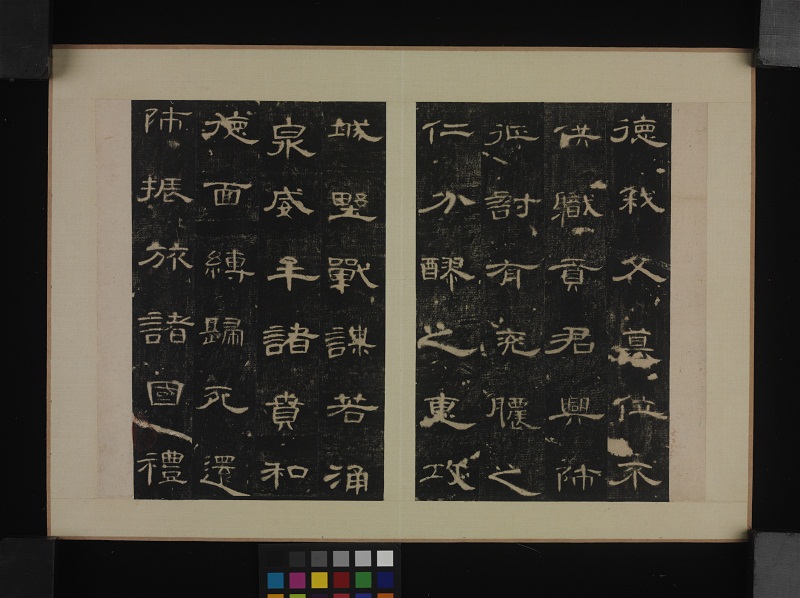 德弒父篡位不
供職貢君興師
征討有兗膿之
仁分醪之惠攻
城墅戰謀若涌
泉威牟諸賁和
德面縛歸死還
師振旅諸國禮